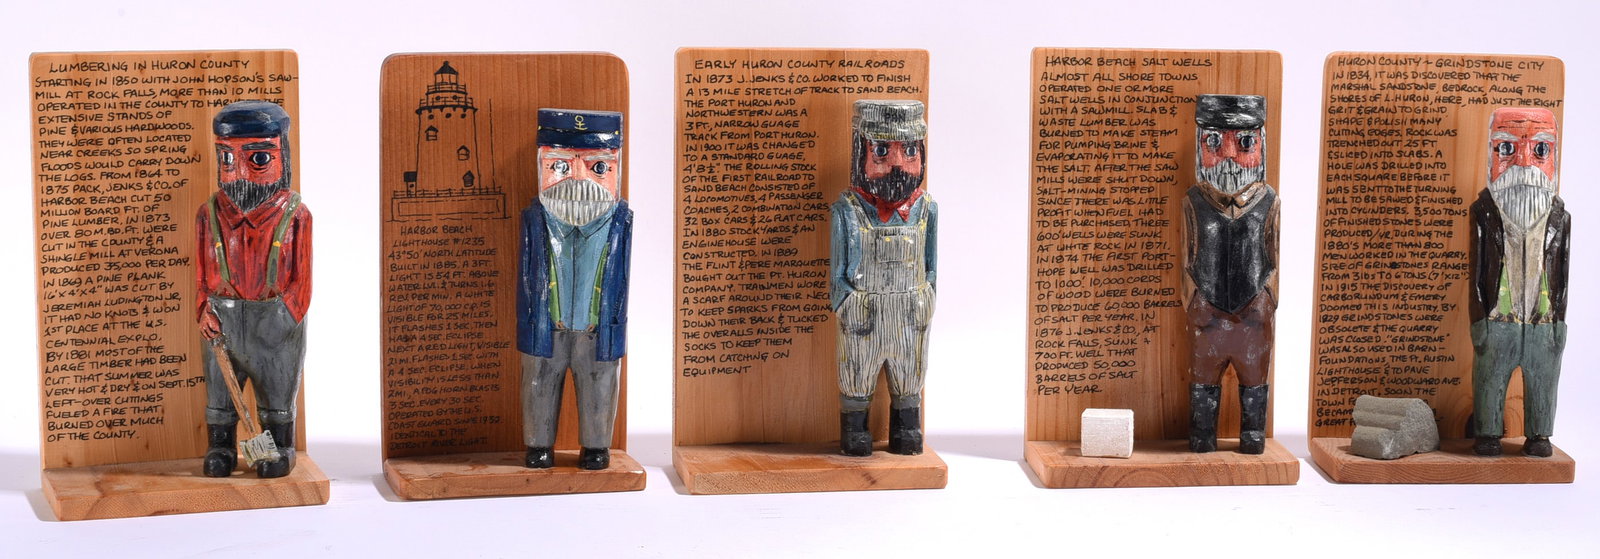 LUMBERING IN HURON COUNTY
STARTING IN 1850 WITH JOHN HOPSON'S SAW-
MILL AT ROCK FALLS, MORE THAN 10 MILLS
OPERATED IN THE COUNTY TO HARVEST THE
EXTENSIVE STANDS OF
PINE & VARIOUS HARDWOODS.
THEY WERE OFTEN LOCATED
NEAR CREEKS SO SPRING
FLOODS WOULD CARRY DOWN
THE LOGS. FROM 1864 TO
1875 PACK, JENKS & CO. OF
HARBOR BEACH CUT 50
MILLION BOARD FT. OF
PINE LUMBER, IN 1873
OVER 80 M. BD. FT. WERE
CUT IN THE COUNTY & A
SHINGLE MILL AT VERONA
PRODUCED 35,000 PER DAY.
IN 1869 A PINE PLANK
16'x4'x4" WAS CUT BY
JEREMIAH LUDINGTON JR.
IT HAD NO KNOTS & WON
1ST PLACE AT THE U.S.
CENTENNIAL EXPLO.
BY 1881 MOST OF THE
LARGE TIMBER HAD BEEN
CUT. THAT SUMMER WAS
VERY HOT & DRY & ON SEPT. 15TH
LEFT-OVER CUTTINGS
FUELED A FIRE THAT
BURNED OVER MUCH
OF THE COUNTY.
HARBOR BEACH
LIGHTHOUSE #1235
43°50' NORTH LATITUDE
BUILT IN 1885. A 3FT.
LIGHT IS 54 FT. ABOVE
WATER LVL. & TURNS 1.6
REV. PER MIN. A WHITE
LIGHT OF 70,000 CP. IS
VISIBLE FOR 25 MILES.
IT FLASHES 1 SEC. THEN
HAS A 4 SEC. ECLIPSE.
NEXT A RED LIGHT, VISIBLE
21 MI. FLASHES 1 SEC. WITH
A 4 SEC. ECLIPSE. WHEN
VISIBILITY IS LESS THAN
2 MI., A FOG HORN BLASTS
3 SEC. EVERY 30 SEC.
OPERATED BY THE U.S.
COAST GUARD SINCE
IDENTICAL TO THE
DETROIT RIVER LIGHT
EARLY HURON COUNTY RAILROADS
IN 1873 J. JENKS & CO. WORKED TO FINISH
A 13 MILE STRETCH OF TRACK TO SAND BEACH.
THE PORT HURON AND
NORTHWESTERN WAS A
3 FT., NARROW GUAGE
TRACK FROM PORT HURON.
IN 1900 IT WAS CHANGED
TO A STANDARD GUAGE,
4' 8½". THE ROLLING STOCK
OF THE FIRST RAILROAD TO
SAND BEACH CONSISTED OF
4 LOCOMOTIVES, 4 PASSENGER
COACHES, 2 COMBINATION CARS,
32 BOX CARS & 26 FLAT CARS.
IN 1880 STOCKYARDS & AN
ENGINEHOUSE WERE
CONSTRUCTED. IN 1889
THE FLINT & PERE MARQUETTE
BOUGHT OUT THE PT. HURON
COMPANY. TRAINMEN WORE
A SCARF AROUND THEIR NECK
TO KEEP SPARKS FROM GOING
DOWN THEIR BACK & TUCKED
THE OVERALLS INSIDE THE
SOCKS TO KEEP THEM
FROM CATCHING ON
EQUIPMENT
HARBOR BEACH SALT WELLS
ALMOST ALL SHORE TOWNS
OPERATED ONE OR MORE
SALT WELLS IN CONJUNCTION
WITH A SAWMILL. SLABS &
WASTE LUMBER WAS
BURNED TO MAKE STEAM
FOR PUMPING BRINE &
EVAPORATING IT TO MAKE
THE SALT. AFTER THE SAW
MILLS WERE SHUT DOWN,
SALT-MINING STOPPED
SINCE THERE WAS LITTLE
PROFIT WHEN FUEL HAD
TO BE PURCHASED. THREE
600' WELLS WERE SUNK
AT WHITE ROCK IN 1871.
IN 1874 THE FIRST PORT-
HOPE WELL WAS DRILLED
TO 1000'. 10,000 CORDS
OF WOOD WERE BURNED
TO PRODUCE 60,000 BARRELS
OF SALT PER YEAR. IN
1876 J. JENKS & CO. AT
ROCK FALLS, SUNK A
700 FT. WELL THAT
PRODUCED 50,000
BARRELS OF SALT
PER YEAR.
HURON COUNTY - GRINDSTONE CITY
IN 1834, IT WAS DISCOVERED THAT THE
MARSHAL SANDSTONE, BEDROCK ALONG THE
SHORES OF L. HURON, HERE, HAD JUST THE RIGHT
GRIT & GRAIN TO GRIND,
SHAPE & POLISH MANY
CUTTING EDGES. ROCK WAS
TRENCHED OUT 25 FT
& SLICED INTO SLABS. A
HOLE WAS DRILLED INTO
EACH SQUARE BEFORE IT
WAS SENT TO THE TURNING
MILL TO BE SAWED & FINISHED
INTO CYLINDERS. 3,500 TONS
OF FINISHED STONES WERE
PRODUCED/YR. DURING THE
1880'S MORE THAN 800
MEN WORKED IN THE QUARRY.
SIZE OF GRINDSTONES RANGE
FROM 3 LBS TO 6 TONS (7'x12").
IN 1915 THE DISCOVERY OF
CARBORUNDUM & EMERY
DOOMED THIS INDUSTRY. BY
1929 GRINDSTONES WERE
OBSOLETE & THE QUARRY
WAS CLOSED. "GRINDSTONE"
WAS ALSO USED IN BARN-
FOUNDATIONS, THE PT. AUSTIN
LIGHTHOUSE & TO PAVE
JEFFERSON & WOODWARD AVE.
IN DETROIT. SOON THE
TOWN
BECAM
GREAT